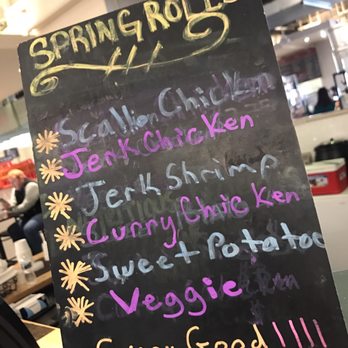 SPRING ROLLS
Scallion Chicken
Jerk Chicken
Jerk Shrimp
Curry Chicken
Sweet Potatoe
Veggie
Good !!!!